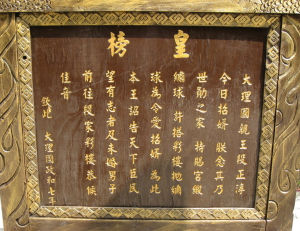 皇榜
大理國親王段正淳
今日招婿 朕念其乃
世勛之家 特賜宮緞
繡球 許搭彩樓拋繡
球為令愛招婿 為此
本王詔告天下臣民
望有志者及未婚男子
前往段家彩樓恭候
佳音
欽此 大理國政和七年